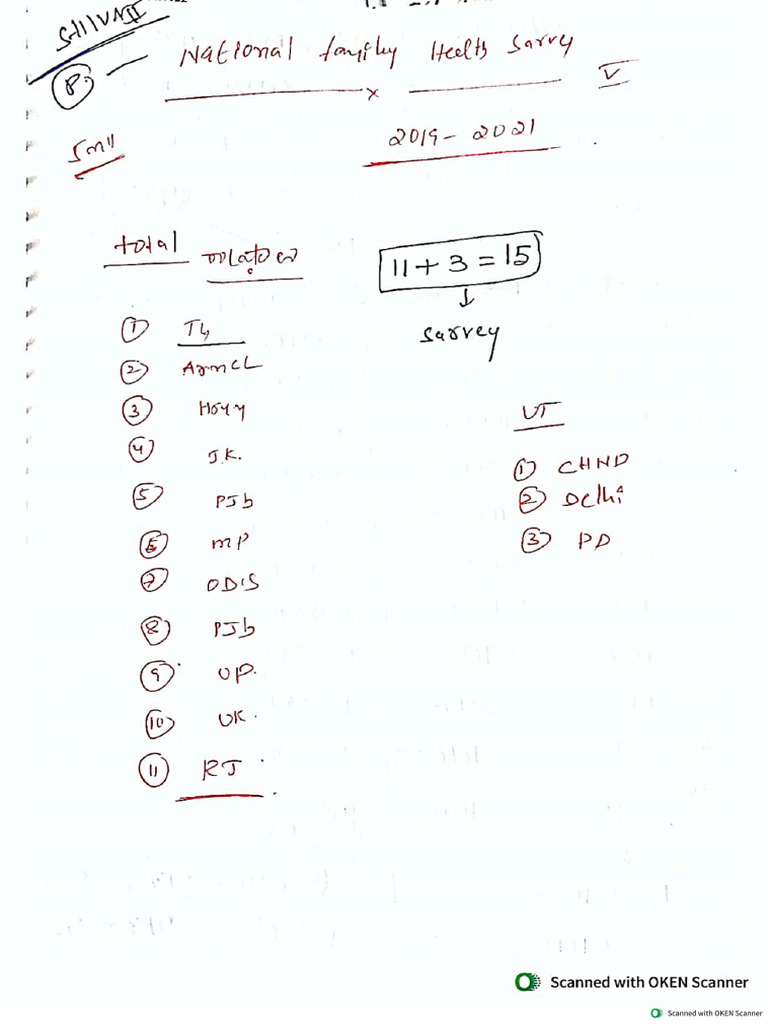 8.
National family Health Sarvey V
2019-2021
total
11+3=15
sarvey
① 
② 
③ 
④ J.K.
⑤ PJb
⑥ MP
⑦ ODIS
⑧ PJb
⑨ UP.
⑩ UK.
⑪ RJ
UT
① CHND
② Delhi
③ PD
Scanned with OKEN Scanner
Scanned with OKEN Scanner